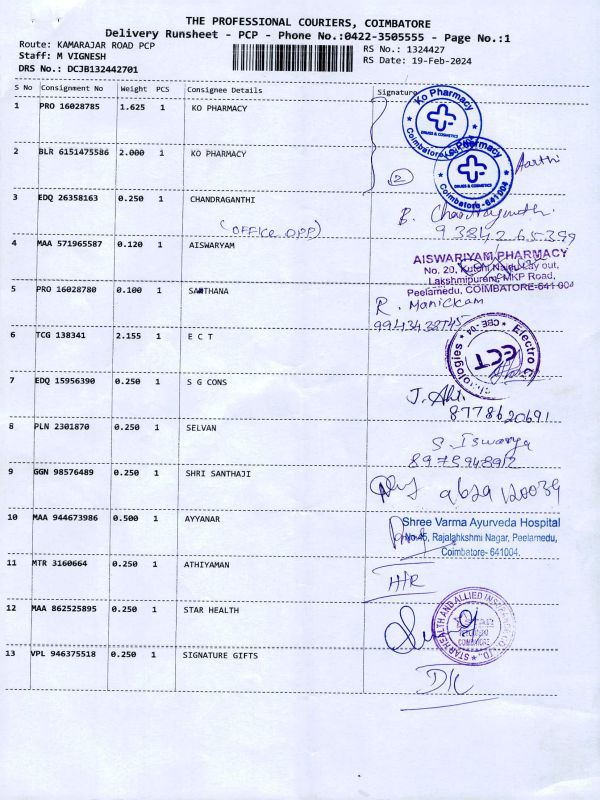 THE PROFESSIONAL COURIERS, COIMBATORE
Delivery Runsheet - PCP - Phone No.:0422-3505555 - Page No.:1
Route: KAMARAJAR ROAD PCP
RS No.: 1324427
Staff: M VIGNESH
RS Date: 19-Feb-2024
DRS No.: DCJB132442701
S No Consignment No Weight PCS Consignee Details Signature
1 PRO 16028785 1.625 1 KO PHARMACY
Ko Pharmacy
DRUGS & COSMETICS
Coimbatore
2 BLR 6151475586 2.000 1 KO PHARMACY
Pharmacy
DRUGS & COSMETICS
Coimbatore-641004
Aarthi
2
3 EDQ 26358163 0.250 1 CHANDRAGANTHI
(OFFICE OPP)
B.
93842 65399
4 MAA 571965587 0.120 1 AISWARYAM
AISWARIYAM PHARMACY
No. 20, Kutchi Naidu Lay out,
Lakshmipuram, MKP Road,
Peelamedu, COIMBATORE-641 004
5 PRO 16028780 0.100 1 SANTHANA
R. Manickam
9943438745
6 TCG 138341 2.155 1 E C T
Electro
ECT
CBE-04
7 EDQ 15956390 0.250 1 S G CONS
J.
8778620691
8 PLN 2301870 0.250 1 SELVAN
S. Iswarya
8975948912
9 GGN 98576489 0.250 1 SHRI SANTHAJI
9629 120039
10 MAA 944673986 0.500 1 AYYANAR
Shree Varma Ayurveda Hospital
No.45, Rajalahkshmi Nagar, Peelamedu,
Coimbatore- 641004.
11 MTR 3160664 0.250 1 ATHIYAMAN
12 MAA 862525895 0.250 1 STAR HEALTH
STAR HEALTH AND ALLIED
13 VPL 946375518 0.250 1 SIGNATURE GIFTS